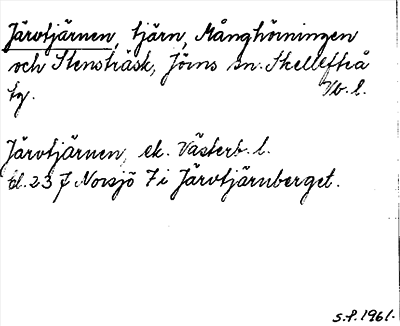 Järvtjärnen, tjärn, Månghörningen
och Stensträsk, Jörns sn. Skellefteå
tg. Vb. l.
Järvtjärnen, ek. Västerb. l.
bl. 23 J Norsjö 7 i Järvtjärnberget.
S.P. 1961.